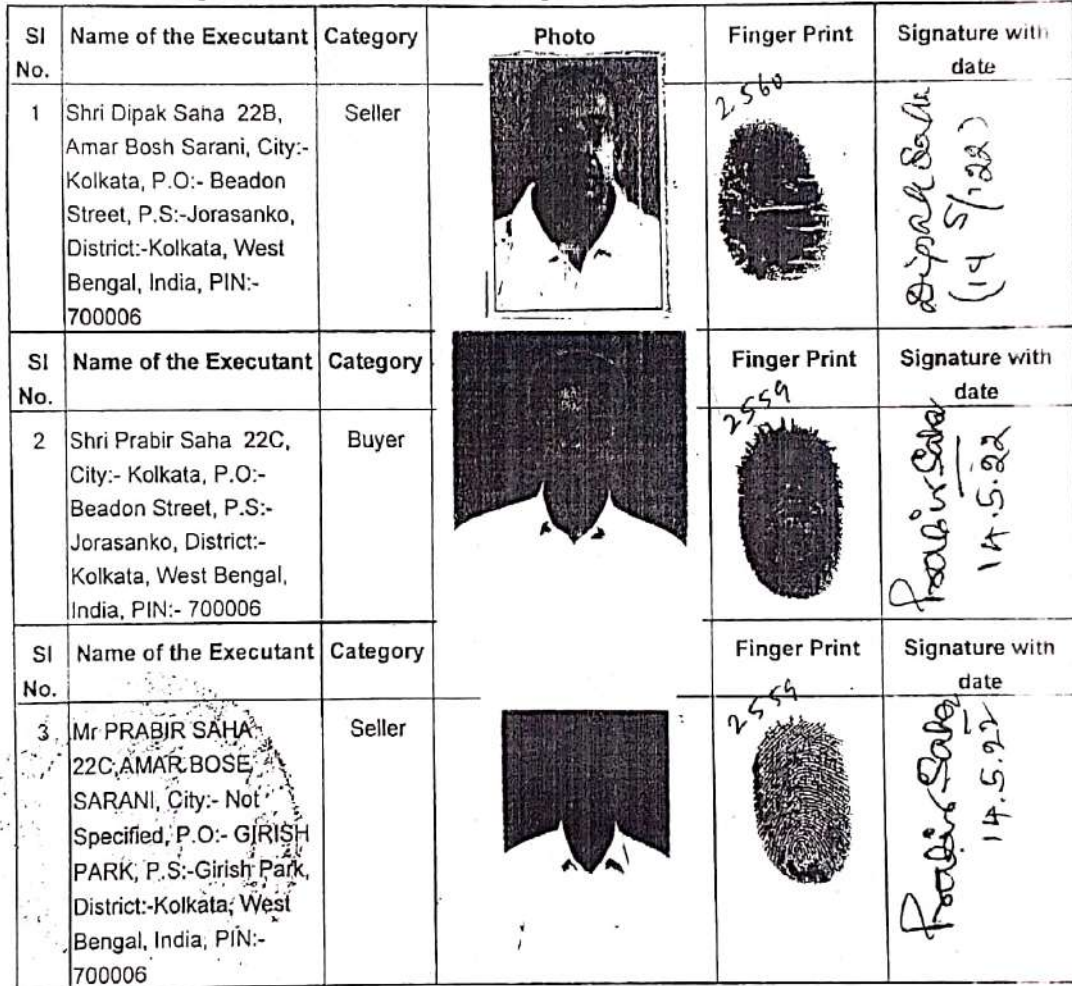 Sl No. Name of the Executant Category Photo Finger Print Signature with date
1 Shri Dipak Saha 22B,
Amar Bosh Sarani, City:-
Kolkata, P.O:- Beadon
Street, P.S:-Jorasanko,
District:-Kolkata, West
Bengal, India, PIN:-
700006
Seller
2560
Dipak Saha
(14 5/22)
Sl No. Name of the Executant Category Finger Print Signature with date
2 Shri Prabir Saha 22C,
City:- Kolkata, P.O:-
Beadon Street, P.S:-
Jorasanko, District:-
Kolkata, West Bengal,
India, PIN:- 700006
Buyer
2559
Prabir Saha
14.5.22
Sl No. Name of the Executant Category Finger Print Signature with date
3 Mr PRABIR SAHA
22C,AMAR BOSE
SARANI, City:- Not
Specified, P.O:- GIRISH
PARK, P.S:-Girish Park,
District:-Kolkata, West
Bengal, India, PIN:-
700006
Seller
2559
Prabir Saha
14.5.22